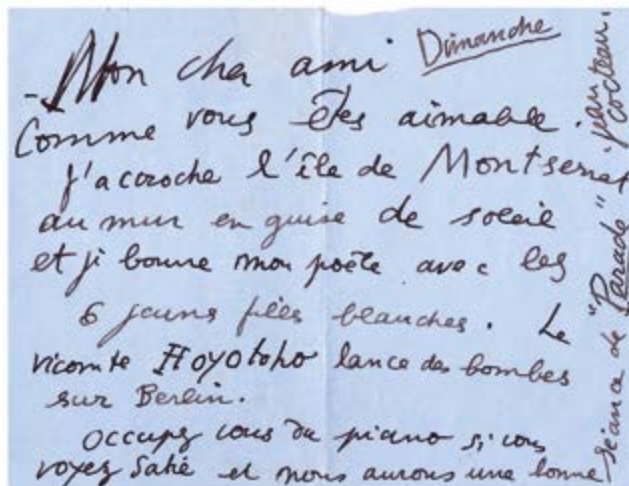 Dimanche
Mon cher ami
Comme vous êtes aimable.
J'accroche l'île de Montserrat
au mur en guise de soleil
et je bourre mon poële avec les
6 jeunes filles blanches. Le
vicomte Hoyotoho lance des bombes
sur Berlin.
Occupez vous du piano si vous
voyez Satie et nous aurons une bonne
séance de "Parade". Jean Cocteau.